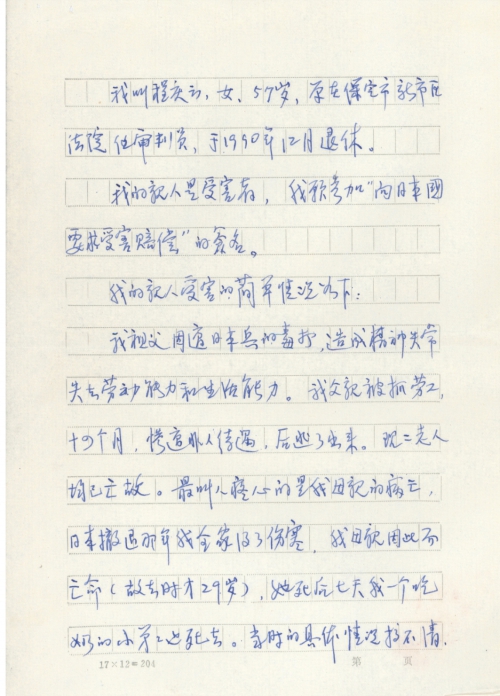 我叫程庆云，女，57岁，原在保定市新市区
法院任审判员，于1990年12月退休。
我的親人是受害者，我願参加“向日本國
要求受害赔偿”的签名。
我的親人受害的简单情况如下：
我祖父因遭日本兵的毒打，造成精神失常
失去劳动能力和生活能力。我父親被抓劳工，
十四个月，惨遭非人待遇，后逃了出来。现二老人
均已亡故。最叫人疼心的是我母親的病亡，
日本撤退那年我全家得了伤寒，我母親因此而
亡命（故去时才29岁），她死后七天我一个吃
奶的小弟弟也死去。当时的具体情况找不清，
17×12=204 第 页